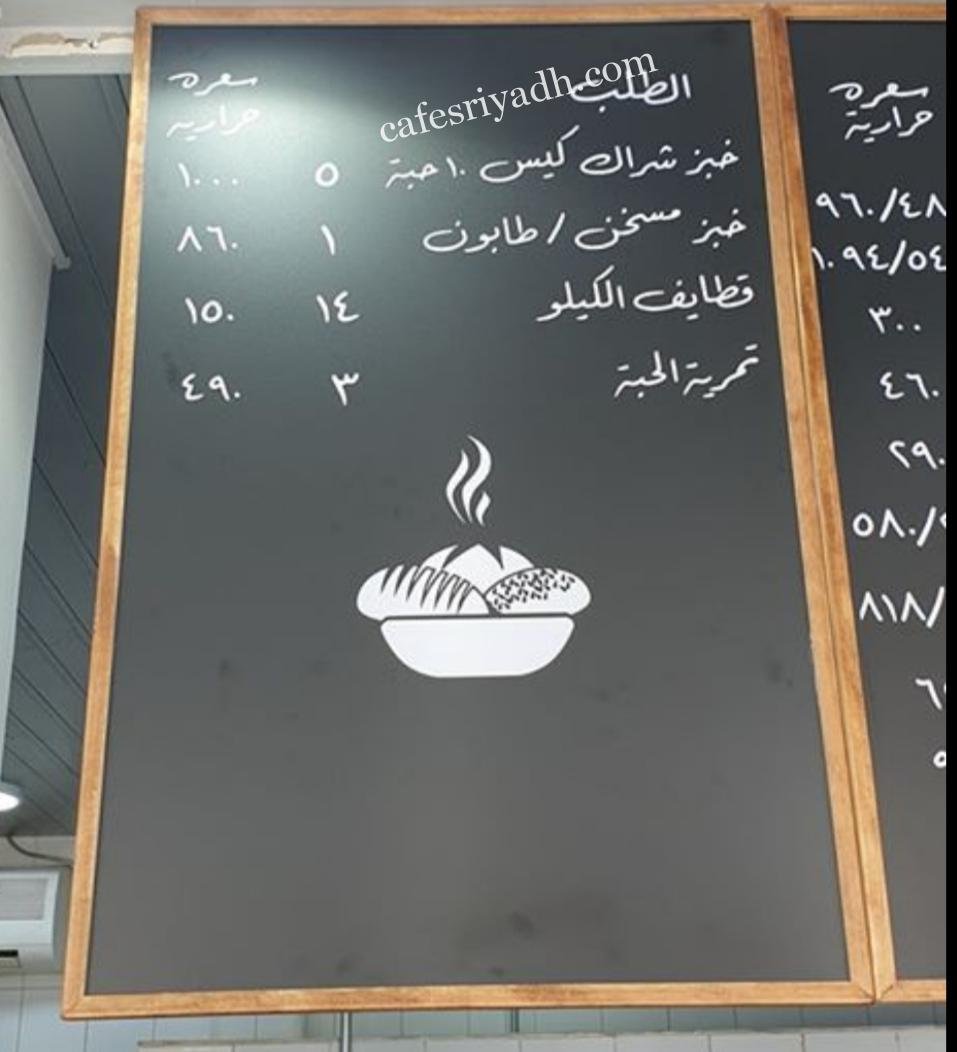 cafesriyadh.com
الطلب سعره حرارية
خبز شراك كيس ١٠ حبة ٥ ١٠٠٠
خبز مسخن / طابون ١ ٨٦٠
قطايف الكيلو ١٤ ١٥٠
تمرية الحبة ٣ ٤٩٠
سعره
حرارية
٩٦٠/٤٨
١٠٩٤/٥٤
٣٠٠
٤٦٠
٢٩٠
٥٨٠/
٨١٨/